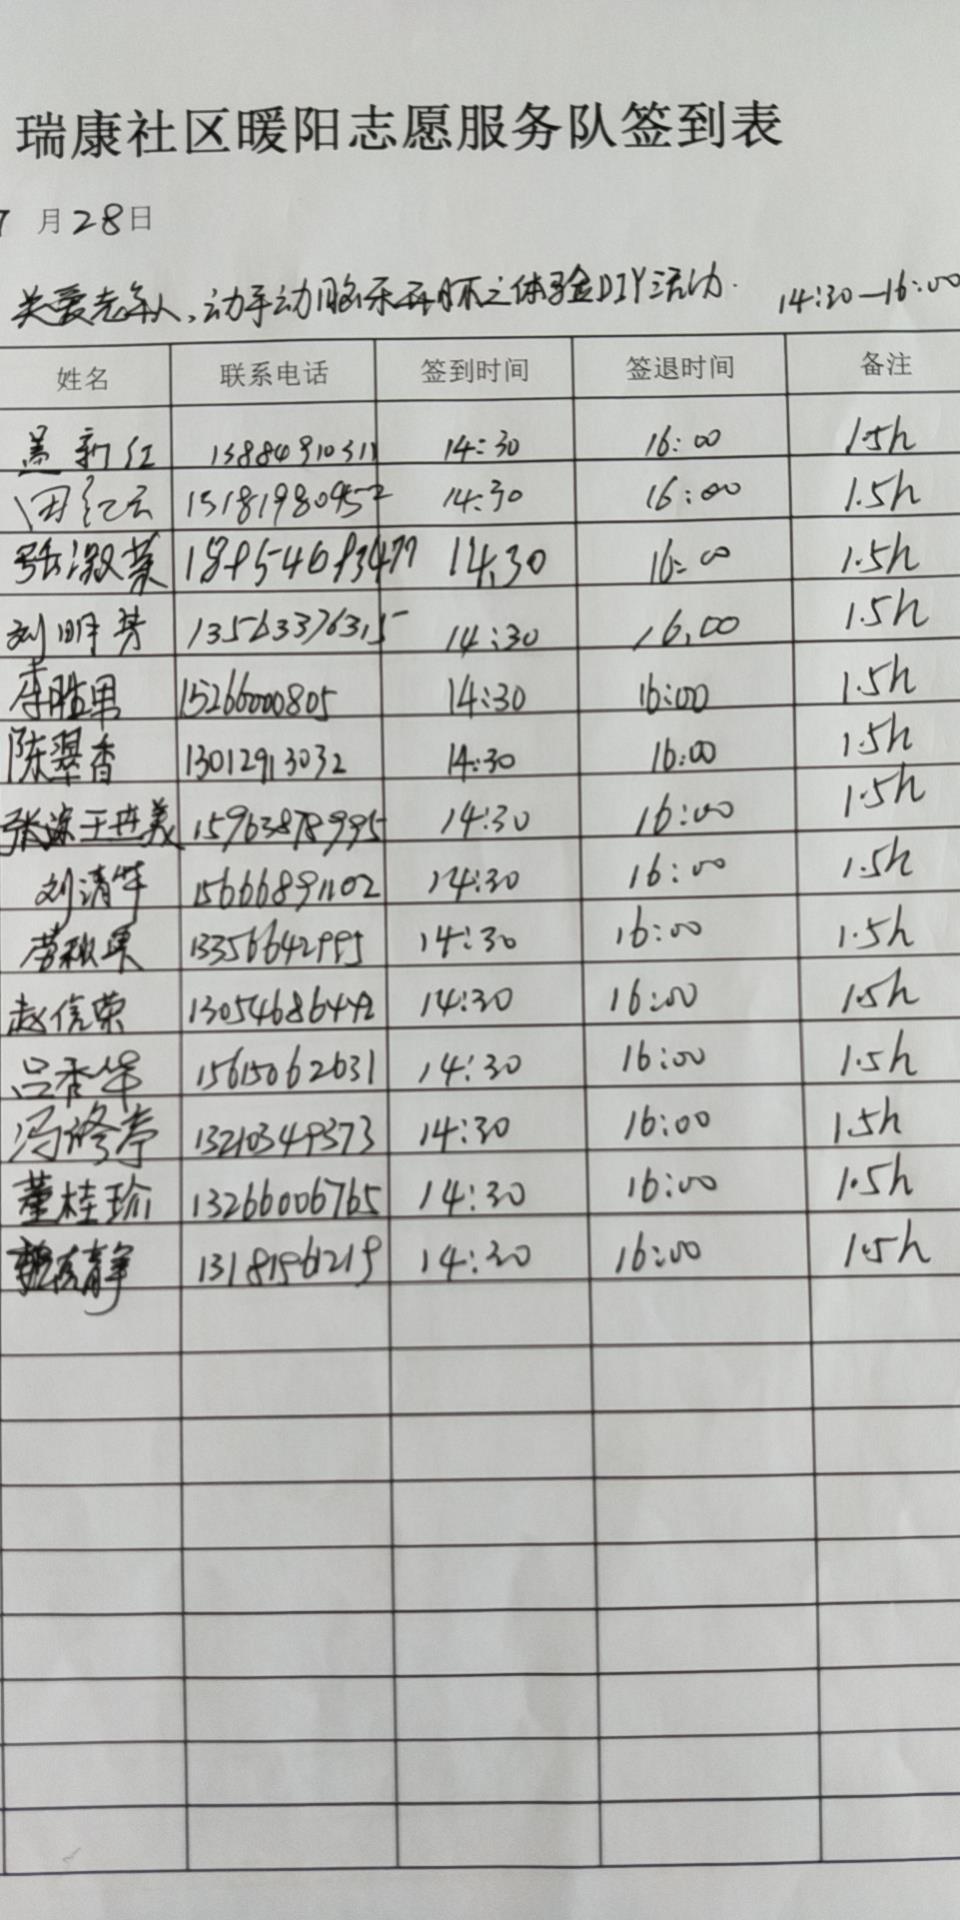 瑞康社区暖阳志愿服务队签到表
7月28日
关爱老年人,动手动脑乐开怀之体验DIY活动. 14:30—16:00
姓名 联系电话 签到时间 签退时间 备注
盖新红 13884910311 14:30 16:00 1.5h
田红云 15181980952 14:30 16:00 1.5h
张淑英 14:30 16:00 1.5h
刘明芳 13563376315 14:30 16:00 1.5h
李胜男 15266000805 14:30 16:00 1.5h
陈翠香 13012913032 14:30 16:00 1.5h
15963878995 14:30 16:00 1.5h
刘清华 15666891102 14:30 16:00 1.5h
13356642995 14:30 16:00 1.5h
赵信荣 13054686492 14:30 16:00 1.5h
吕香华 15615062631 14:30 16:00 1.5h
冯修亭 13210349373 14:30 16:00 1.5h
董桂珍 13266006765 14:30 16:00 1.5h
14:30 16:00 1.5h